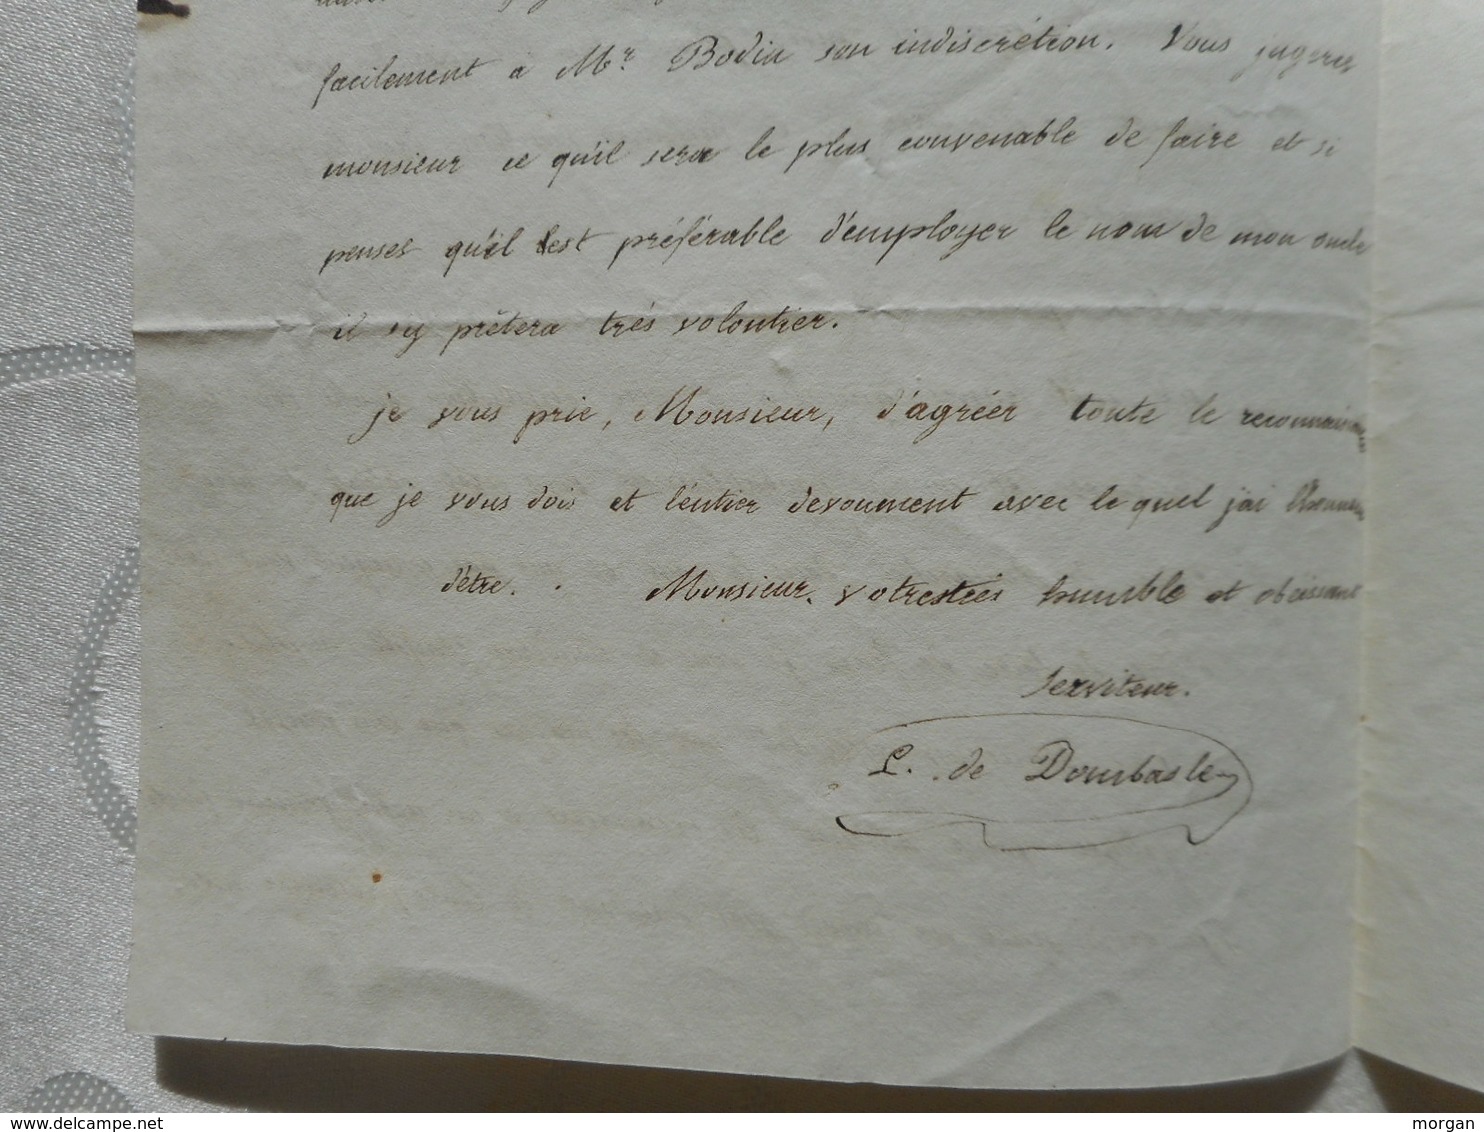 facilement a Mr. Bodin son indiscrétion. Vous jugerez
monsieur ce qu'il sera le plus convenable de faire et si
penses qu'il est préférable d'employer le nom de mon oncle
il s'y prêtera très volontier.
je vous prie, Monsieur, d'agréer toute le reconnaissance
que je vous dois et l'entier devoument avec le quel j'ai l'honneur
d'être. Monsieur, votre très humble et obeissant
Serviteur.
L. de Dombasle
www.delcampe.net
morgan